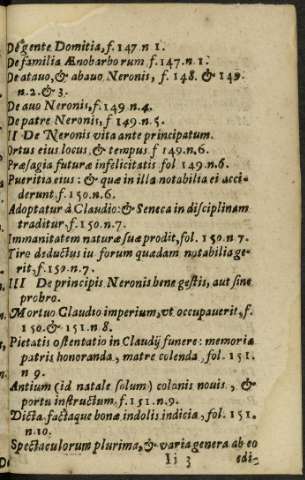 De gente Domitia, f. 147 n 1.
De familia Ænobarborum f. 147. n. 1.
De atauo, & abauo Neronis, f. 148. & 149.
n. 2. & 3.
De auo Neronis, f 149 n. 4.
De patre Neronis, f 149 n. 5.
II De Neronis vita ante principatum.
Ortus eius locus & tempus f 149. n. 6.
Præsagia futuræ infelicitatis fol 149. n. 6.
Pueritia eius: & quæ in illa notabilia ei acci-
derunt f. 150. n. 6.
Adoptatur à Claudio: & Seneca in disciplinam
traditur, f. 150. n. 7.
Immanitatem naturæ suæ prodit, fol. 150. n 7.
Tiro deductus in forum quædam notabilia ge-
rit, f. 150. n. 7.
III De principis Neronis bene gestis, aut sine
probro.
Mortuo Claudio imperium, vt occupauerit, f.
150. & 151. n 8.
Pietatis ostentatio in Claudij funere: memoria
patris honoranda, matre colenda, fol. 151.
n 9.
Antium (id natale solum) colonis nouis, &
portu instructum f. 151. n. 9.
Dicta factaque bonæ indolis indicia, fol. 151.
n. 10.
Spectaculorum plurima, & varia genera ab eo
Ii 3 edi-